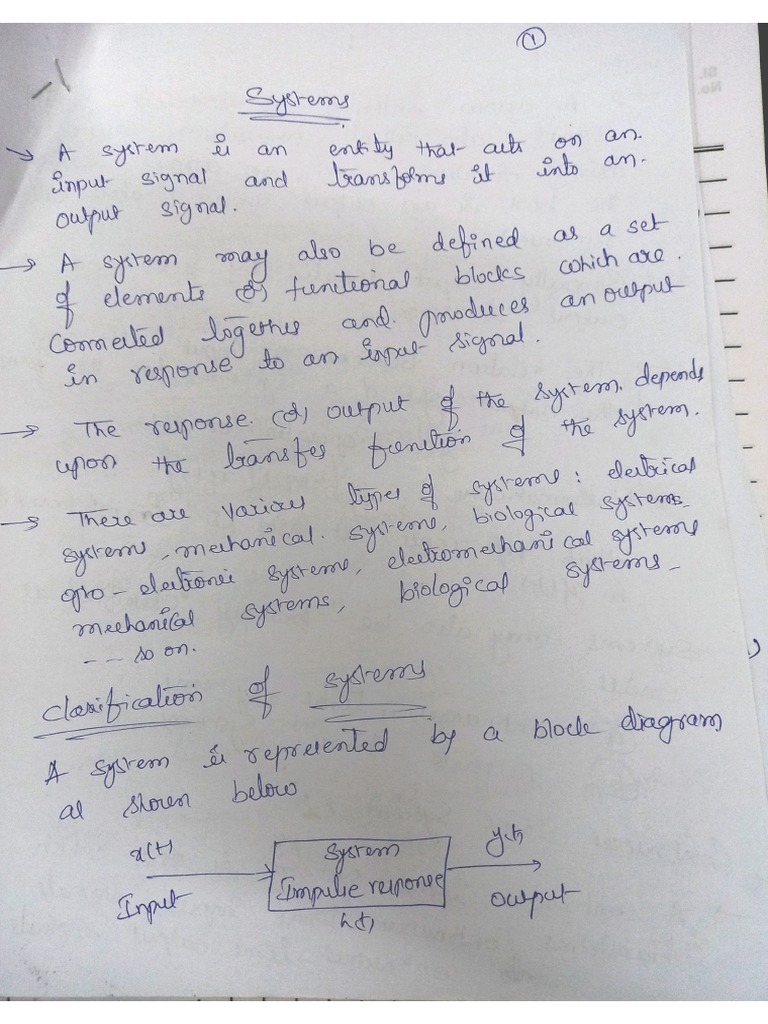 1
Systems
→ A system is an entity that acts on an
input signal and transforms it into an
output signal.
→ A system may also be defined as a set
of elements (or) functional blocks which are
connected together and produces an output
in response to an input signal.
→ The response (or) output of the system depends
upon the transfer function of the system.
→ There are various types of systems: electrical
systems, mechanical systems, biological systems
opto-electronic systems, electromechanical systems
mechanical systems, biological systems
--- so on.
Classification of systems
A system is represented by a block diagram
as shown below
x(t) System y(t)
Input Impulse response output
h(t)